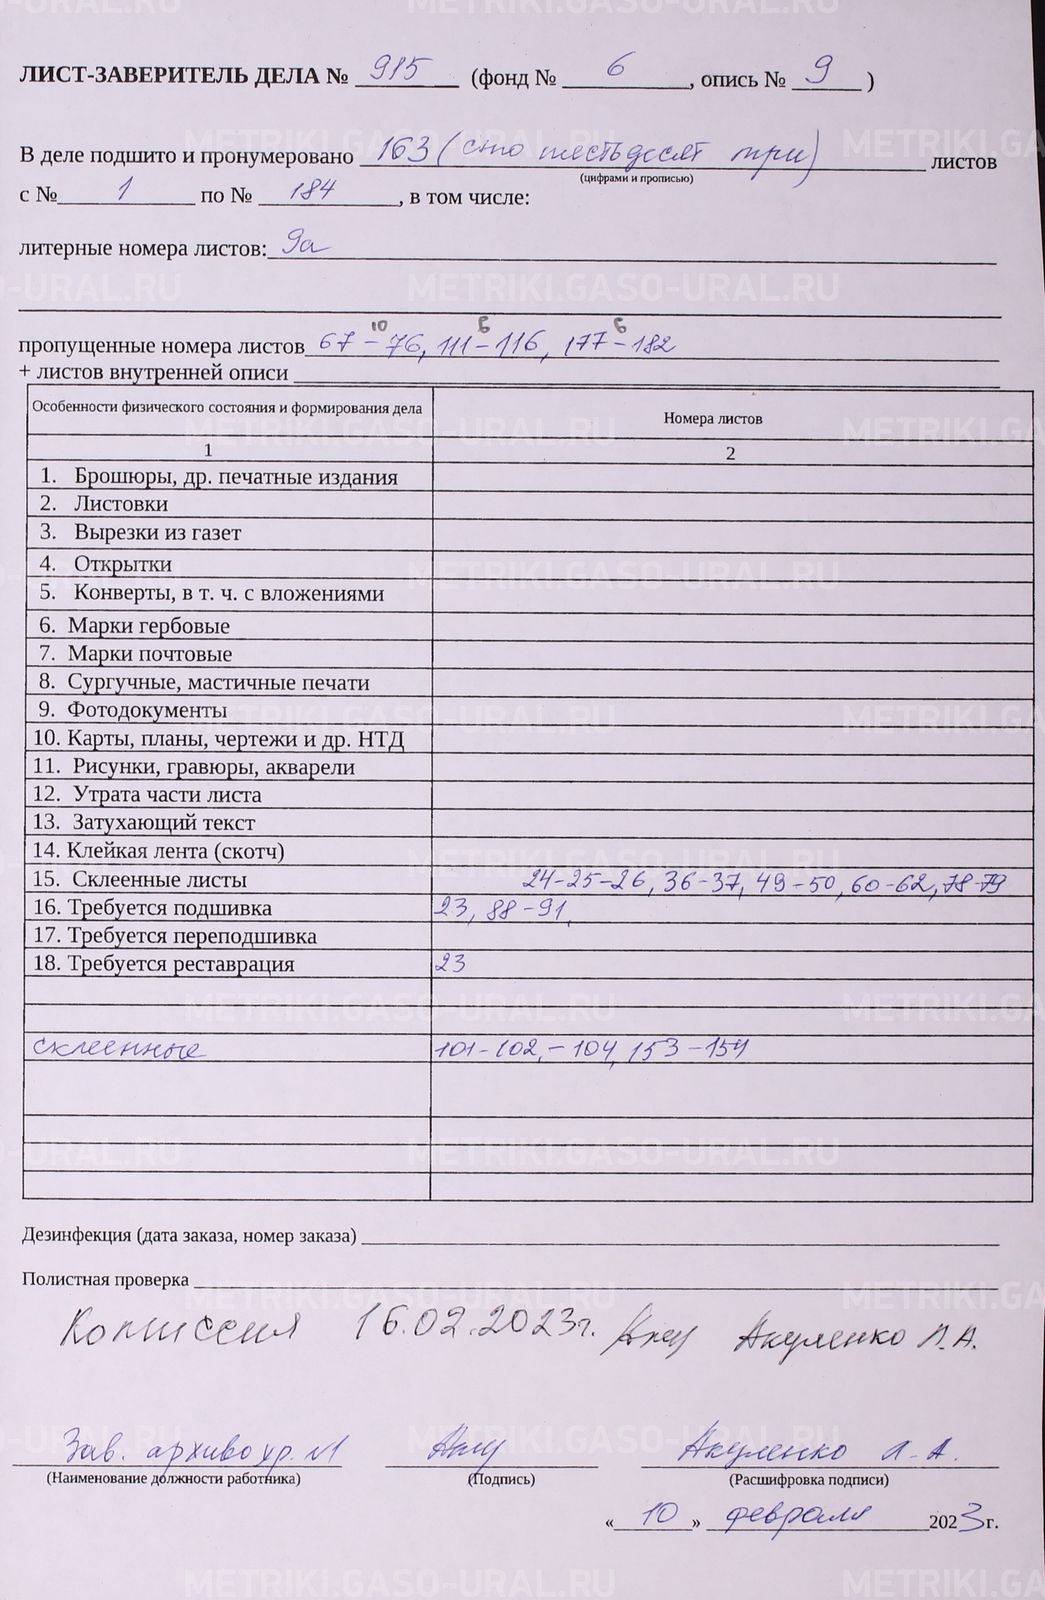 ЛИСТ-ЗАВЕРИТЕЛЬ ДЕЛА № 915 (фонд № 6, опись № 9)
В деле подшито и пронумеровано 163 (сто шестьдесят три) листов
(цифрами и прописью)
с № 1 по № 184, в том числе:
литерные номера листов: 9а
10 6 6
пропущенные номера листов 67-76, 111-116, 177-182
+ листов внутренней описи
Особенности физического состояния и формирования дела Номера листов
1 2
1. Брошюры, др. печатные издания
2. Листовки
3. Вырезки из газет
4. Открытки
5. Конверты, в т. ч. с вложениями
6. Марки гербовые
7. Марки почтовые
8. Сургучные, мастичные печати
9. Фотодокументы
10. Карты, планы, чертежи и др. НТД
11. Рисунки, гравюры, акварели
12. Утрата части листа
13. Затухающий текст
14. Клейкая лента (скотч)
15. Склеенные листы 24-25-26, 36-37, 49-50, 60-62, 78-79
16. Требуется подшивка 23, 88-91,
17. Требуется переподшивка
18. Требуется реставрация 23
склеенные 101-102,-104, 153-154
Дезинфекция (дата заказа, номер заказа)
Полистная проверка
Комиссия 16.02.2023г. Акуленко Л.А.
Зав. архивохр. №1 Акуленко Л.А.
(Наименование должности работника) (Подпись) (Расшифровка подписи)
«10» февраля 2023г.
METRIKI.GASO-URAL.RU